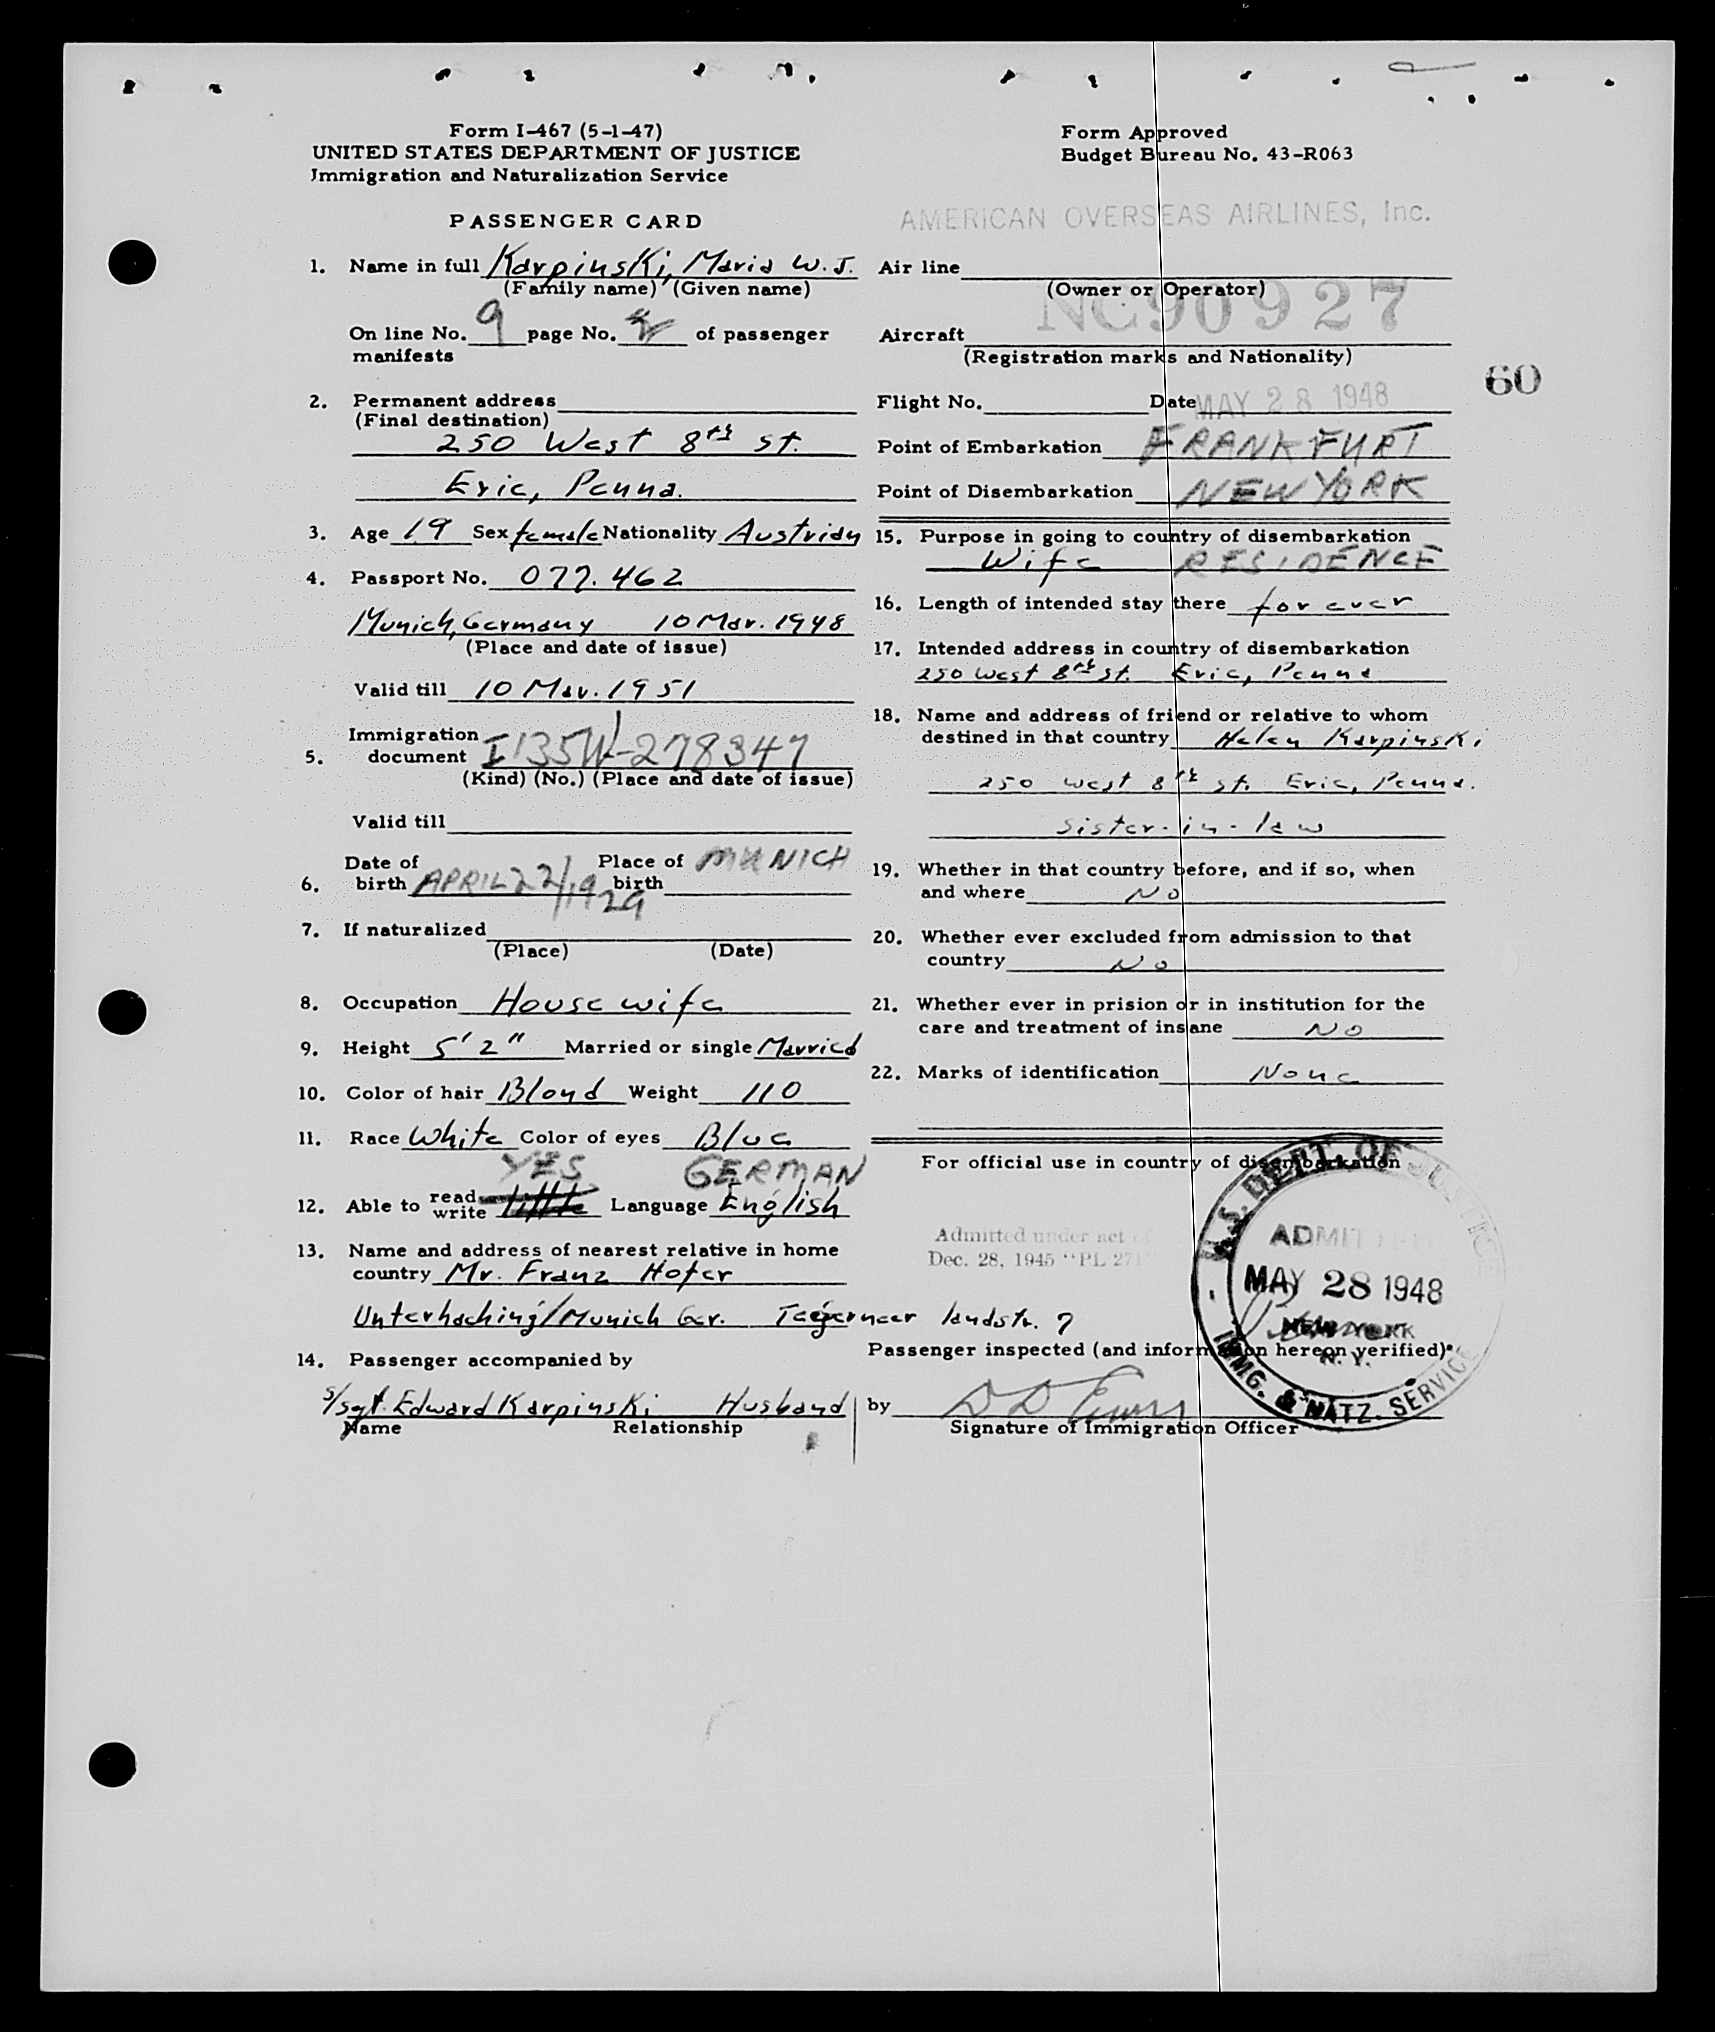 Form I-467 (5-1-47)
UNITED STATES DEPARTMENT OF JUSTICE
Immigration and Naturalization Service
Form Approved
Budget Bureau No. 43-R063
PASSENGER CARD
AMERICAN OVERSEAS AIRLINES, Inc.
1. Name in full Karpinski, Maria W. J.
(Family name) (Given name)
On line No. 9 page No. of passenger
manifests
2. Permanent address
(Final destination)
250 West 8th St.
Erie, Penna.
3. Age 19 Sex female Nationality Austrian
4. Passport No. 077.462
Munich, Germany 10 Mar. 1948
(Place and date of issue)
Valid till 10 Mar. 1951
5. Immigration
document I 135W-278347
(Kind) (No.) (Place and date of issue)
Valid till
6. Date of birth APRIL 22/1929 Place of birth MUNICH
7. If naturalized
(Place) (Date)
8. Occupation Housewife
9. Height 5' 2" Married or single Married
10. Color of hair Blond Weight 110
11. Race White Color of eyes Blue
YES GERMAN
12. Able to read write little Language English
13. Name and address of nearest relative in home
country Mr. Franz Hofer
Unterhaching/Munich Ger. Tegernseer landstr. 7
14. Passenger accompanied by
S/sgt. Edward Karpinski Husband
Name Relationship
Air line
(Owner or Operator)
NC90927
Aircraft
(Registration marks and Nationality)
60
Flight No. Date MAY 28 1948
Point of Embarkation FRANKFURT
Point of Disembarkation NEW YORK
15. Purpose in going to country of disembarkation
Wife RESIDENCE
16. Length of intended stay there for ever
17. Intended address in country of disembarkation
250 West 8th St. Erie, Penna
18. Name and address of friend or relative to whom
destined in that country Helen Karpinski
250 West 8th St. Erie, Penna.
Sister-in-law
19. Whether in that country before, and if so, when
and where No
20. Whether ever excluded from admission to that
country No
21. Whether ever in prision or in institution for the
care and treatment of insane No
22. Marks of identification None
For official use in country of disembarkation
Admitted under act of
Dec. 28, 1945 "PL 271"
U.S. DEPT. OF JUSTICE
ADMITTED
MAY 28 1948
NEW YORK
N. Y.
IMMG. & NATZ. SERVICE
Passenger inspected (and information hereon verified)
by
Signature of Immigration Officer